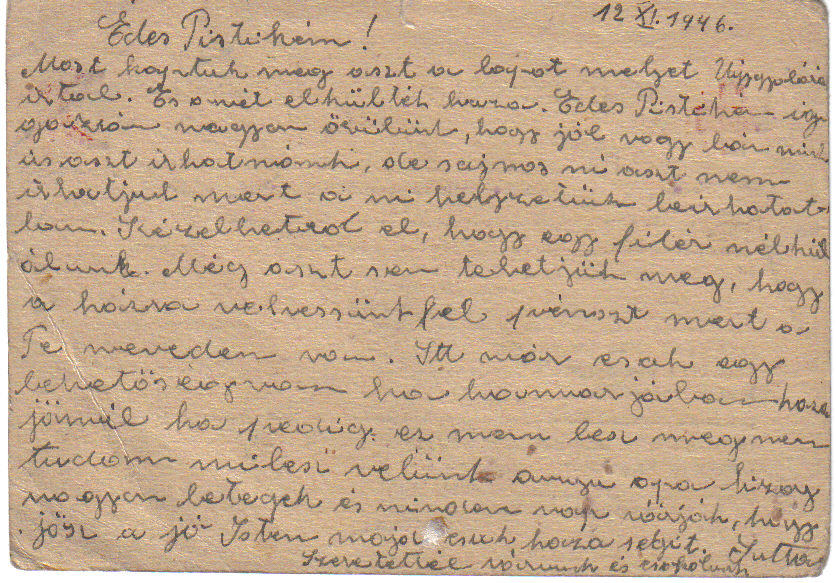 12 XI. 1946.
Édes Pistikém!
Most kaptuk meg aszt a lapot melyet
irtál. És amit elküldtél haza. Édes Pistikém
nagyon örülünk, hogy jól vagy bár mink
is aszt irhatnánk, de sajnos mi aszt nem
irhatjuk mert a mi helyzetünk leirhatat-
lan. Képzelheted el, hogy egy filér nélkül
álunk. Még aszt sem tehetjük meg, hogy
a házra vehessünk fel pénszt mert a
Te neveden van. Itt már csak egy
lehetőség van ha hamarjában haza
jönnél ha pedig ez nem lesz meg nem
tudom mi lesz velünk opa
nagyon betegek és minden nap várják, hogy
jösz a jó Isten majd csak haza segit. Jutka
Szeretettel várunk és csókolunk